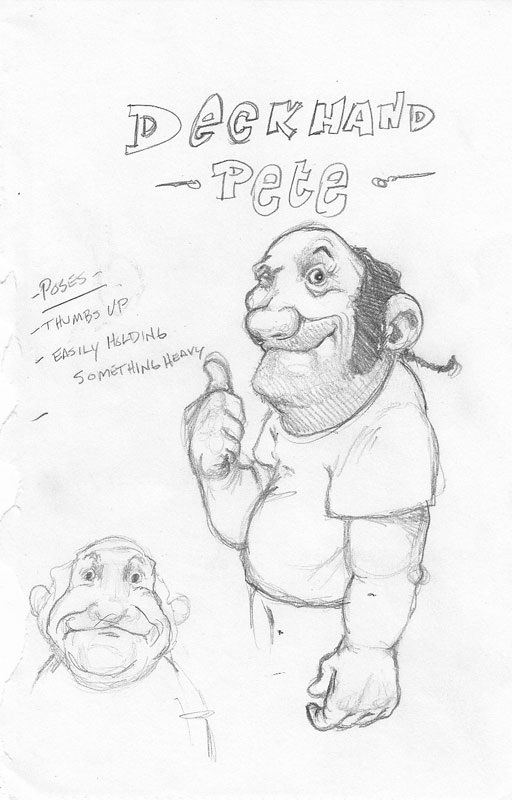 DecKHAND
Pete
- POSES -
- THUMBS UP
- EASILY HOLDING
SOMETHING HEAVY
-